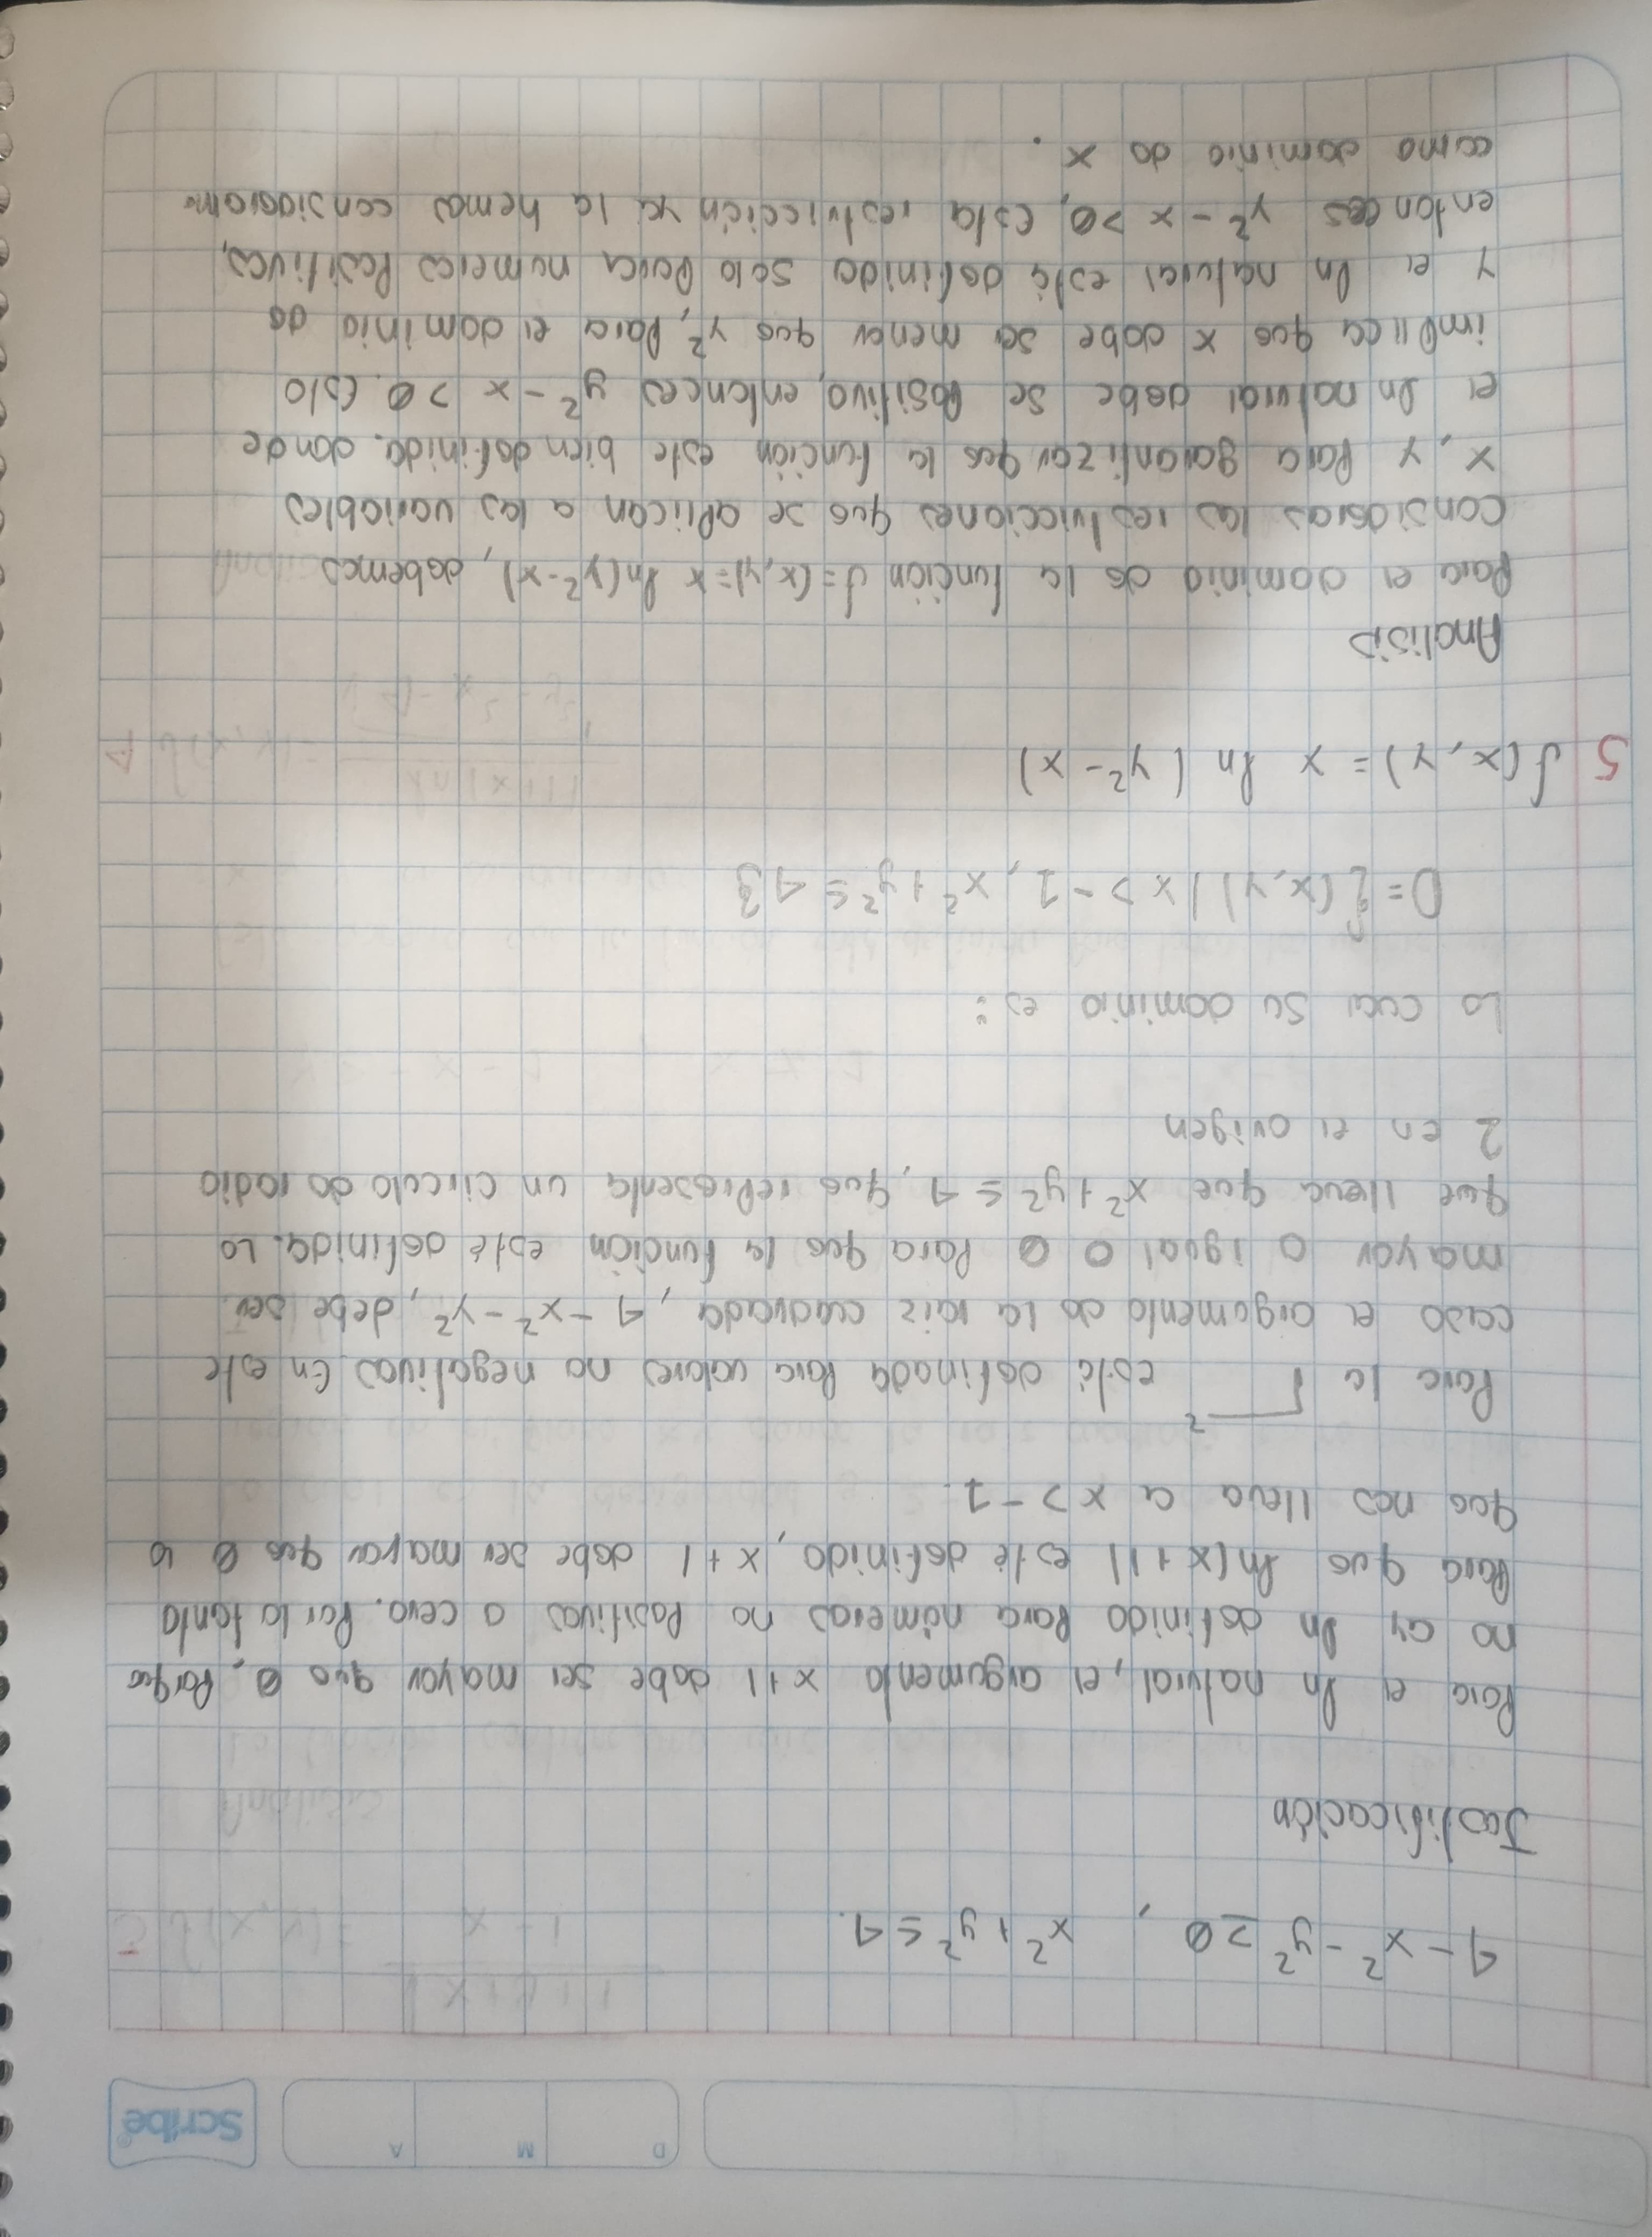 D M A Scribe
4 - x² - y² ≥ 0, x² + y² ≤ 4.
Justificación
Para el ln natural, el argumento x+1 debe ser mayor que 0. Porque
no ay ln definido Para números no Positivos o cero. Por lo tanto
Para que ln(x+1) esté definido, x+1 debe ser mayor que 0 lo
que nos lleva a x > -1.
Para la √ ² está definada Para valores no negativos. En este
caso el argumento de la raiz cuadrada, 4 - x² - y², debe ser
mayor o igual o 0 Para que la función esté definida. Lo
que lleva que x² + y² ≤ 4, que representa un circulo de radio
2 en el origen
Lo cual su dominio es:
D = {(x, y) | x > -1, x² + y² ≤ 4}
5 f(x, y) = x ln (y² - x)
Analisis
Para el dominio de la función f=(x,y)= x ln(y²-x), debemos
consideras las restricciones que se aplican a las variables
x, y Para garantizar que la función este bien definida. donde
el ln natural debe se Positivo, entonces y² - x > 0. Esto
implica que x debe ser menor que y², Para el dominio de
y el ln natural está definido solo Para numeros Positivos,
entonces y² - x > 0, Esta restricción ya la hemos
como dominio de x.